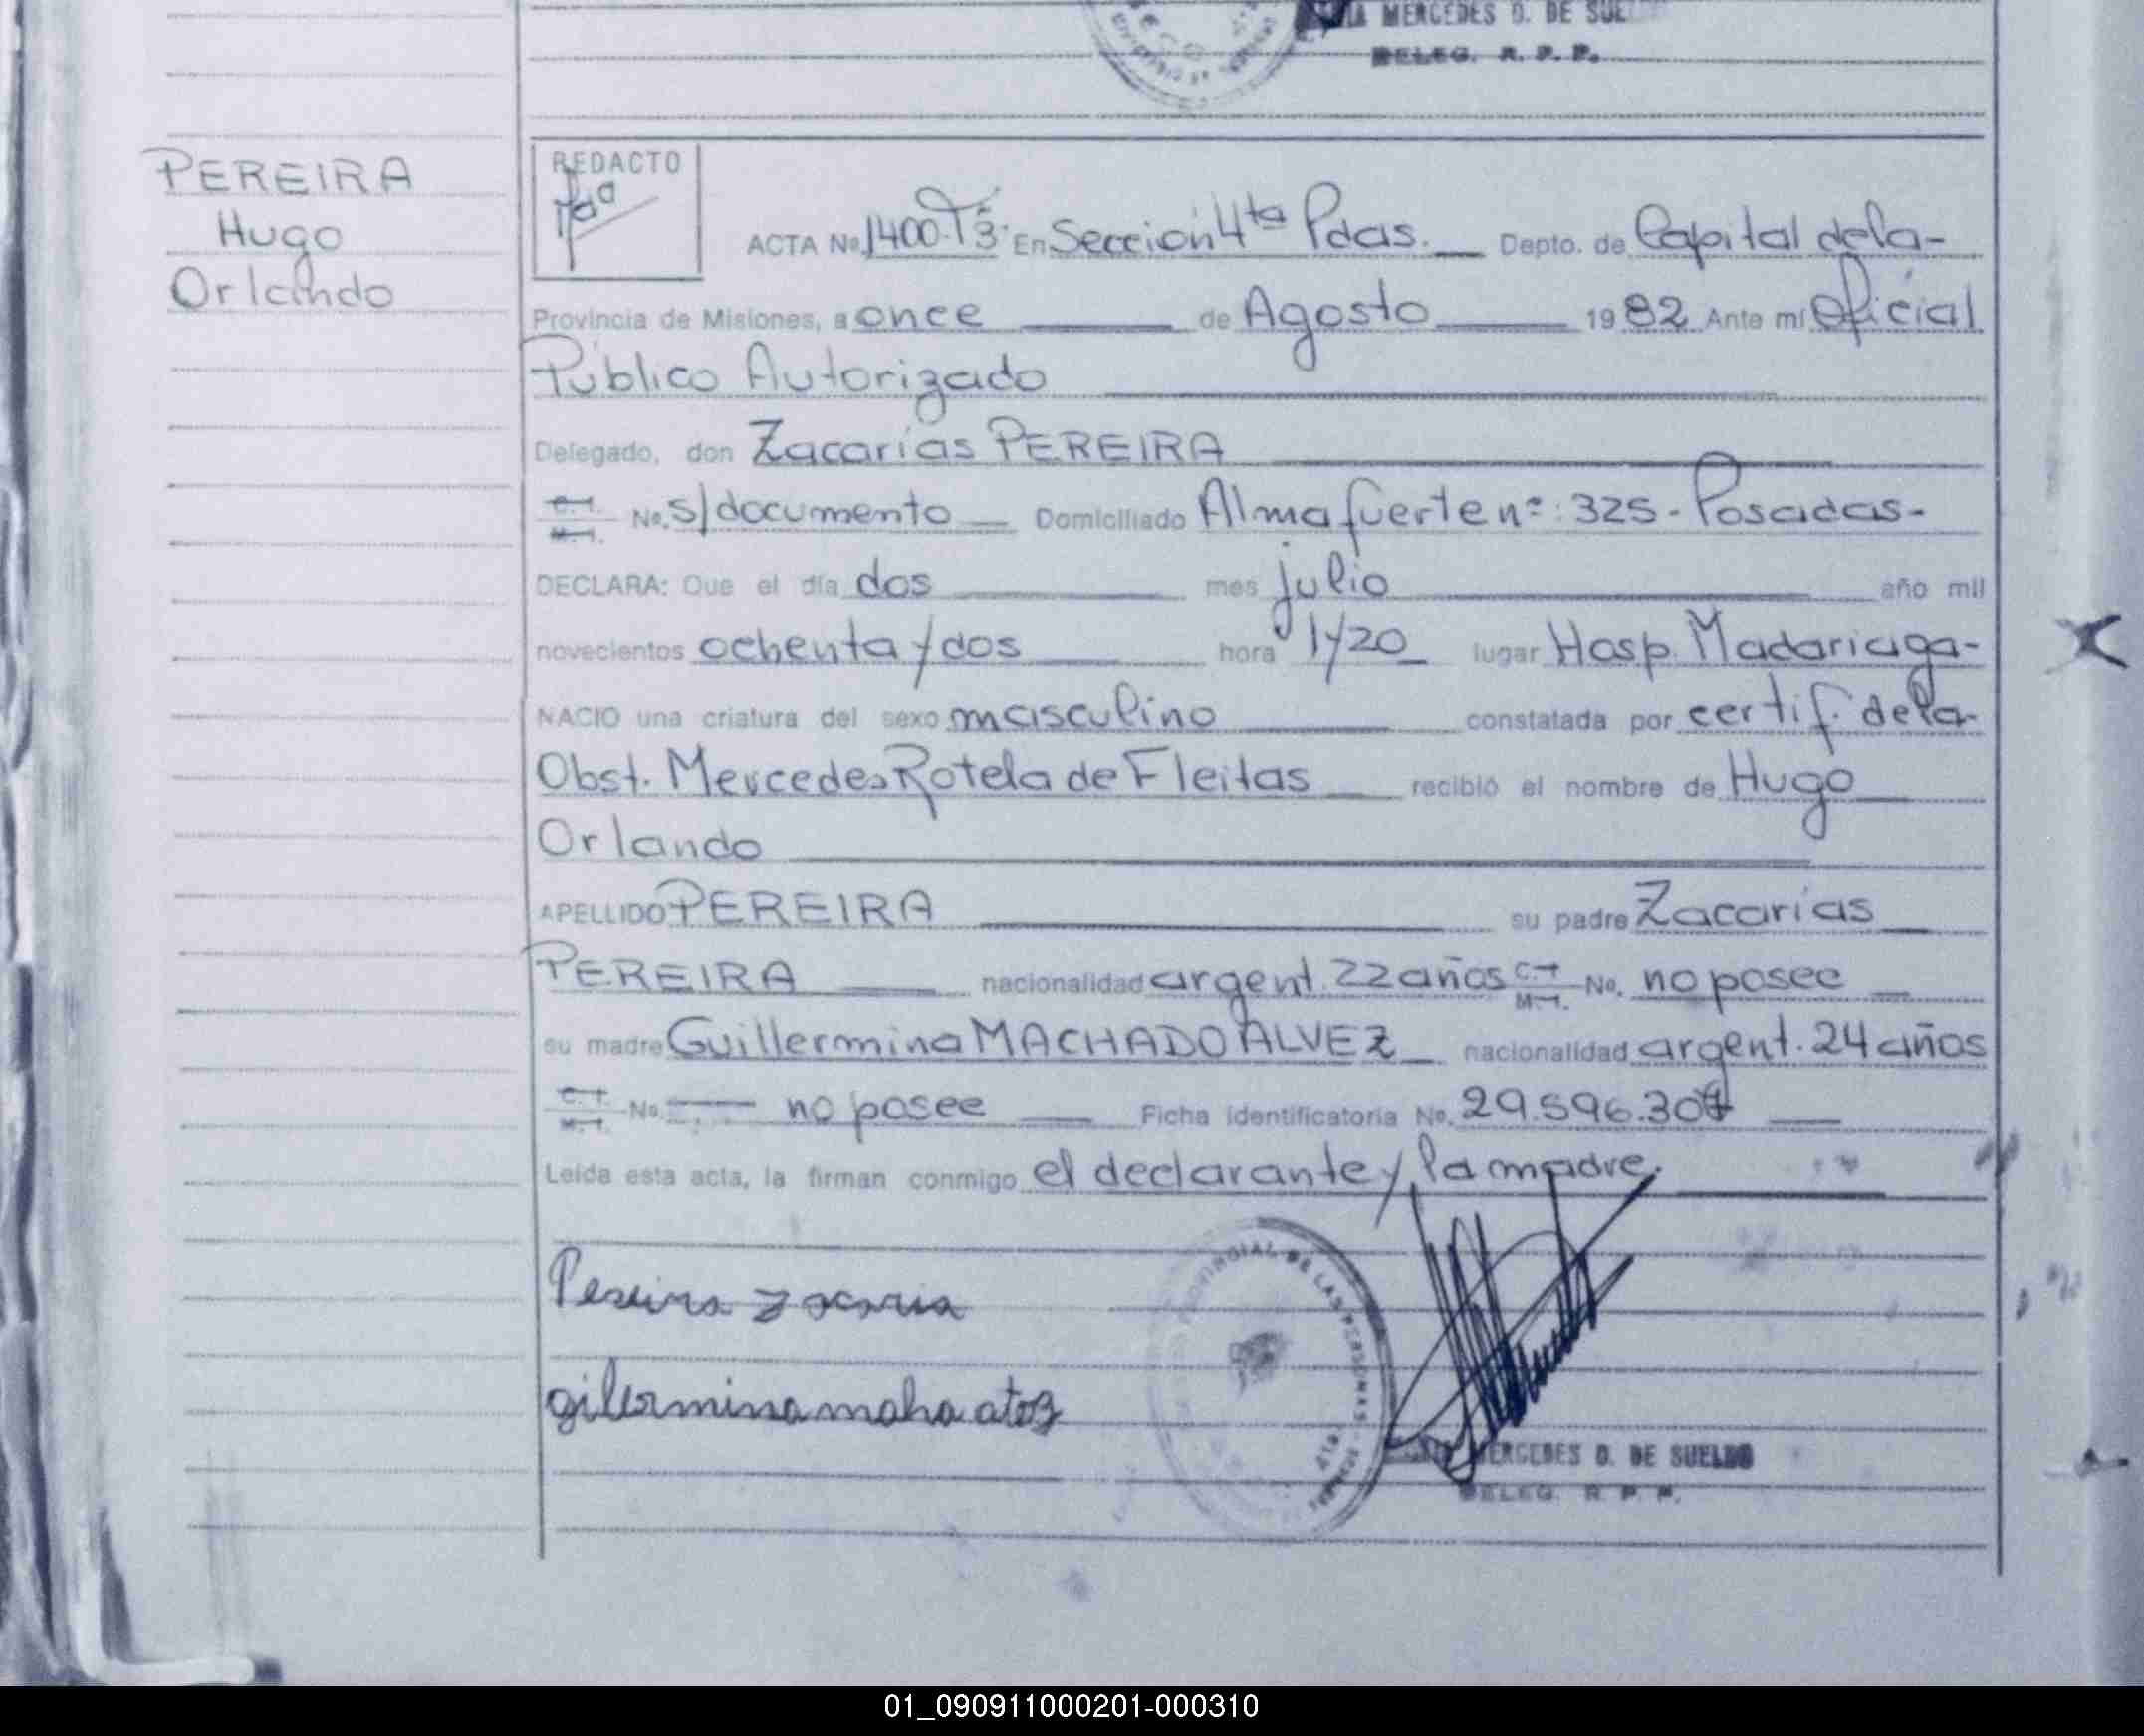 MERCEDES O. DE SUEL
DELEG. R. P. P.
PEREIRA
Hugo
Orlando
REDACTO
ACTA No. 1400-T3- En Sección 4ta Pdas. Depto. de Capital de la-
Provincia de Misiones, a once de Agosto 1982 Ante mí Oficial
Público Autorizado
Delegado, don Zacarías PEREIRA
C.I. M.I. No. s/documento Domiciliado Almafuerte nº: 325 - Posadas -
DECLARA: Que el día dos mes julio año mil
novecientos ochenta y dos hora 1y20 lugar Hosp. Madariaga-
NACIO una criatura del sexo masculino constatada por certif. de la-
Obst. Mercedes Rotela de Fleitas recibió el nombre de Hugo
Orlando
APELLIDO PEREIRA su padre Zacarías
PEREIRA nacionalidad argent. 22 años C.I. M.I. No. no posee
su madre Guillermina MACHADO ALVEZ nacionalidad argent. 24 años
C.I. M.I. No. no posee Ficha identificatoria No. 29.596.307
Leída esta acta, la firman conmigo el declarante y la madre.
Pereira zacaria
PROVINCIAL DE LAS PERSONAS
gilermina maha
MERCEDES O. DE SUELDO
DELEG. R. P. P.
01_090911000201-000310